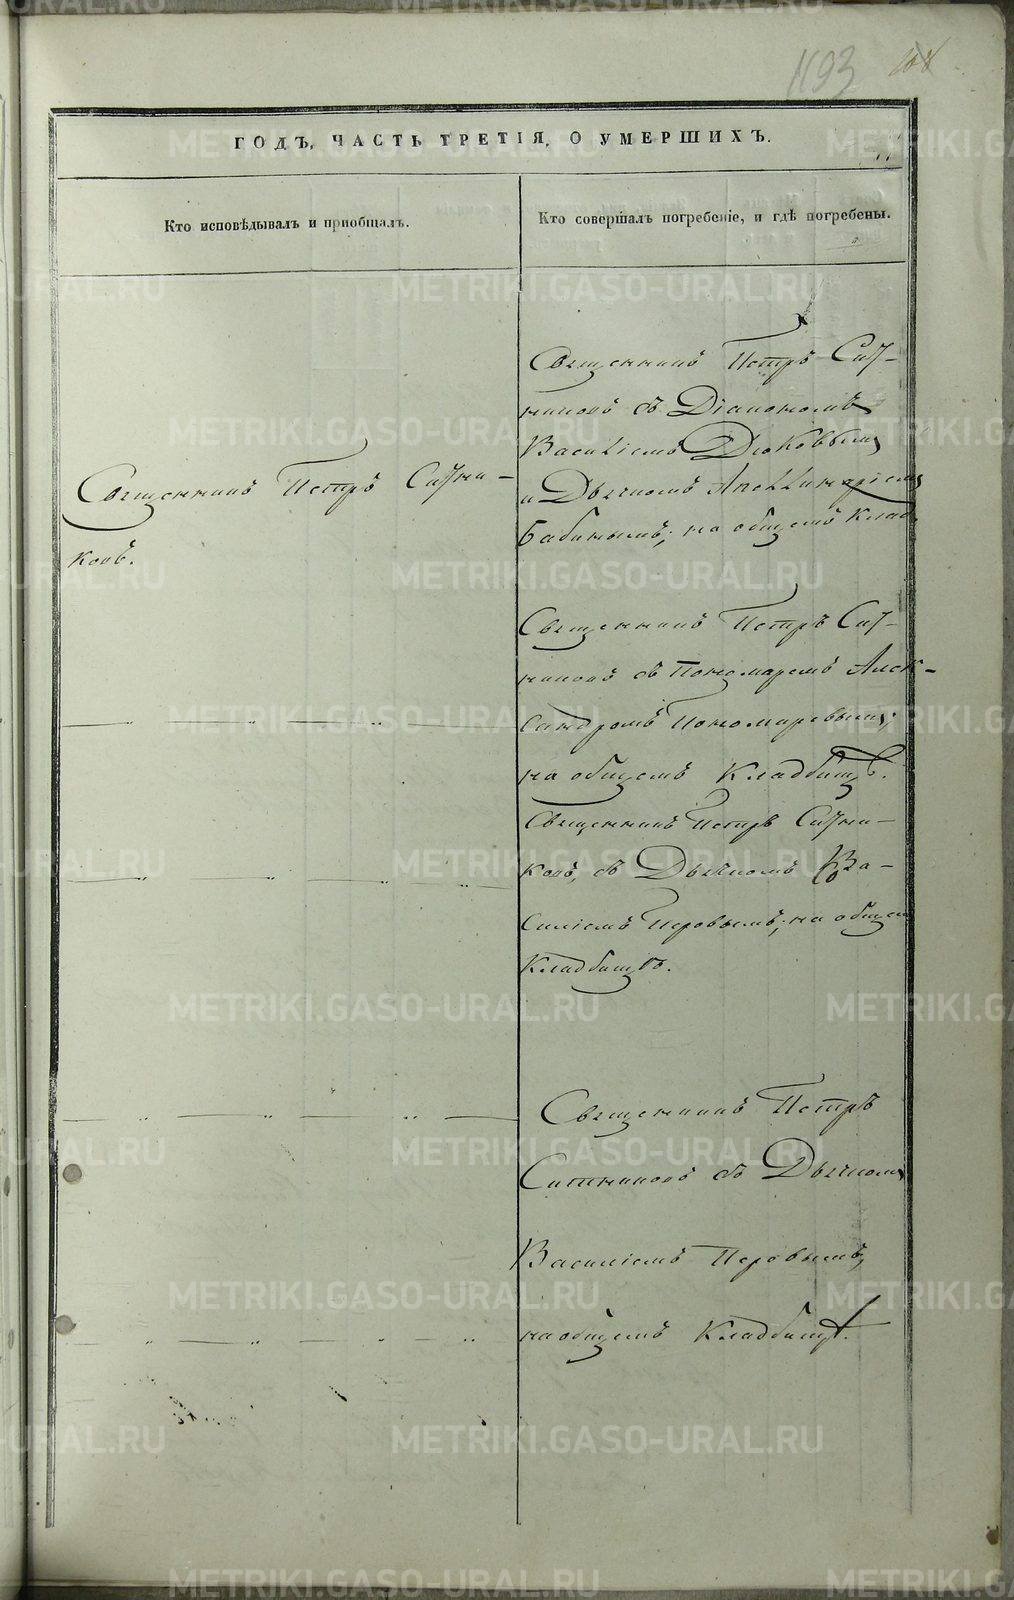 1193
ГОДЪ, ЧАСТЬ ТРЕТІЯ, О УМЕРШИХЪ.
Кто исповѣдывалъ и пріобщалъ.
Кто совершалъ погребеніе, и гдѣ погребены.
Священникъ Петръ Ситни-
ковъ.
Священникъ Петръ Сит-
никовъ съ Діакономъ
Василіемъ Дюковымъ
и Дьячкомъ Апеллинаріемъ
Бабинымъ; на общемъ клад.
Священникъ Петръ Сит-
никовъ съ Пономаремъ Алек-
сандромъ Пономаревымъ;
на общемъ Кладбищѣ.
Священникъ Петръ Ситни-
ковъ, съ Дьячкомъ Ва-
силіемъ Перовымъ; на общем
Кладбищѣ.
Священникъ Петръ
Ситниковъ съ Дьячкомъ
Василіемъ Перовымъ,
на общемъ Кладбищѣ.
METRIKI.GASO-URAL.RU